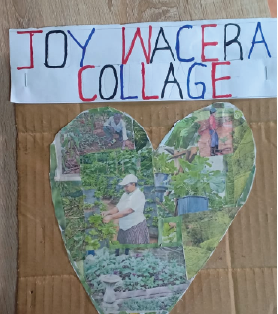 JOY WACERA
COLLAGE